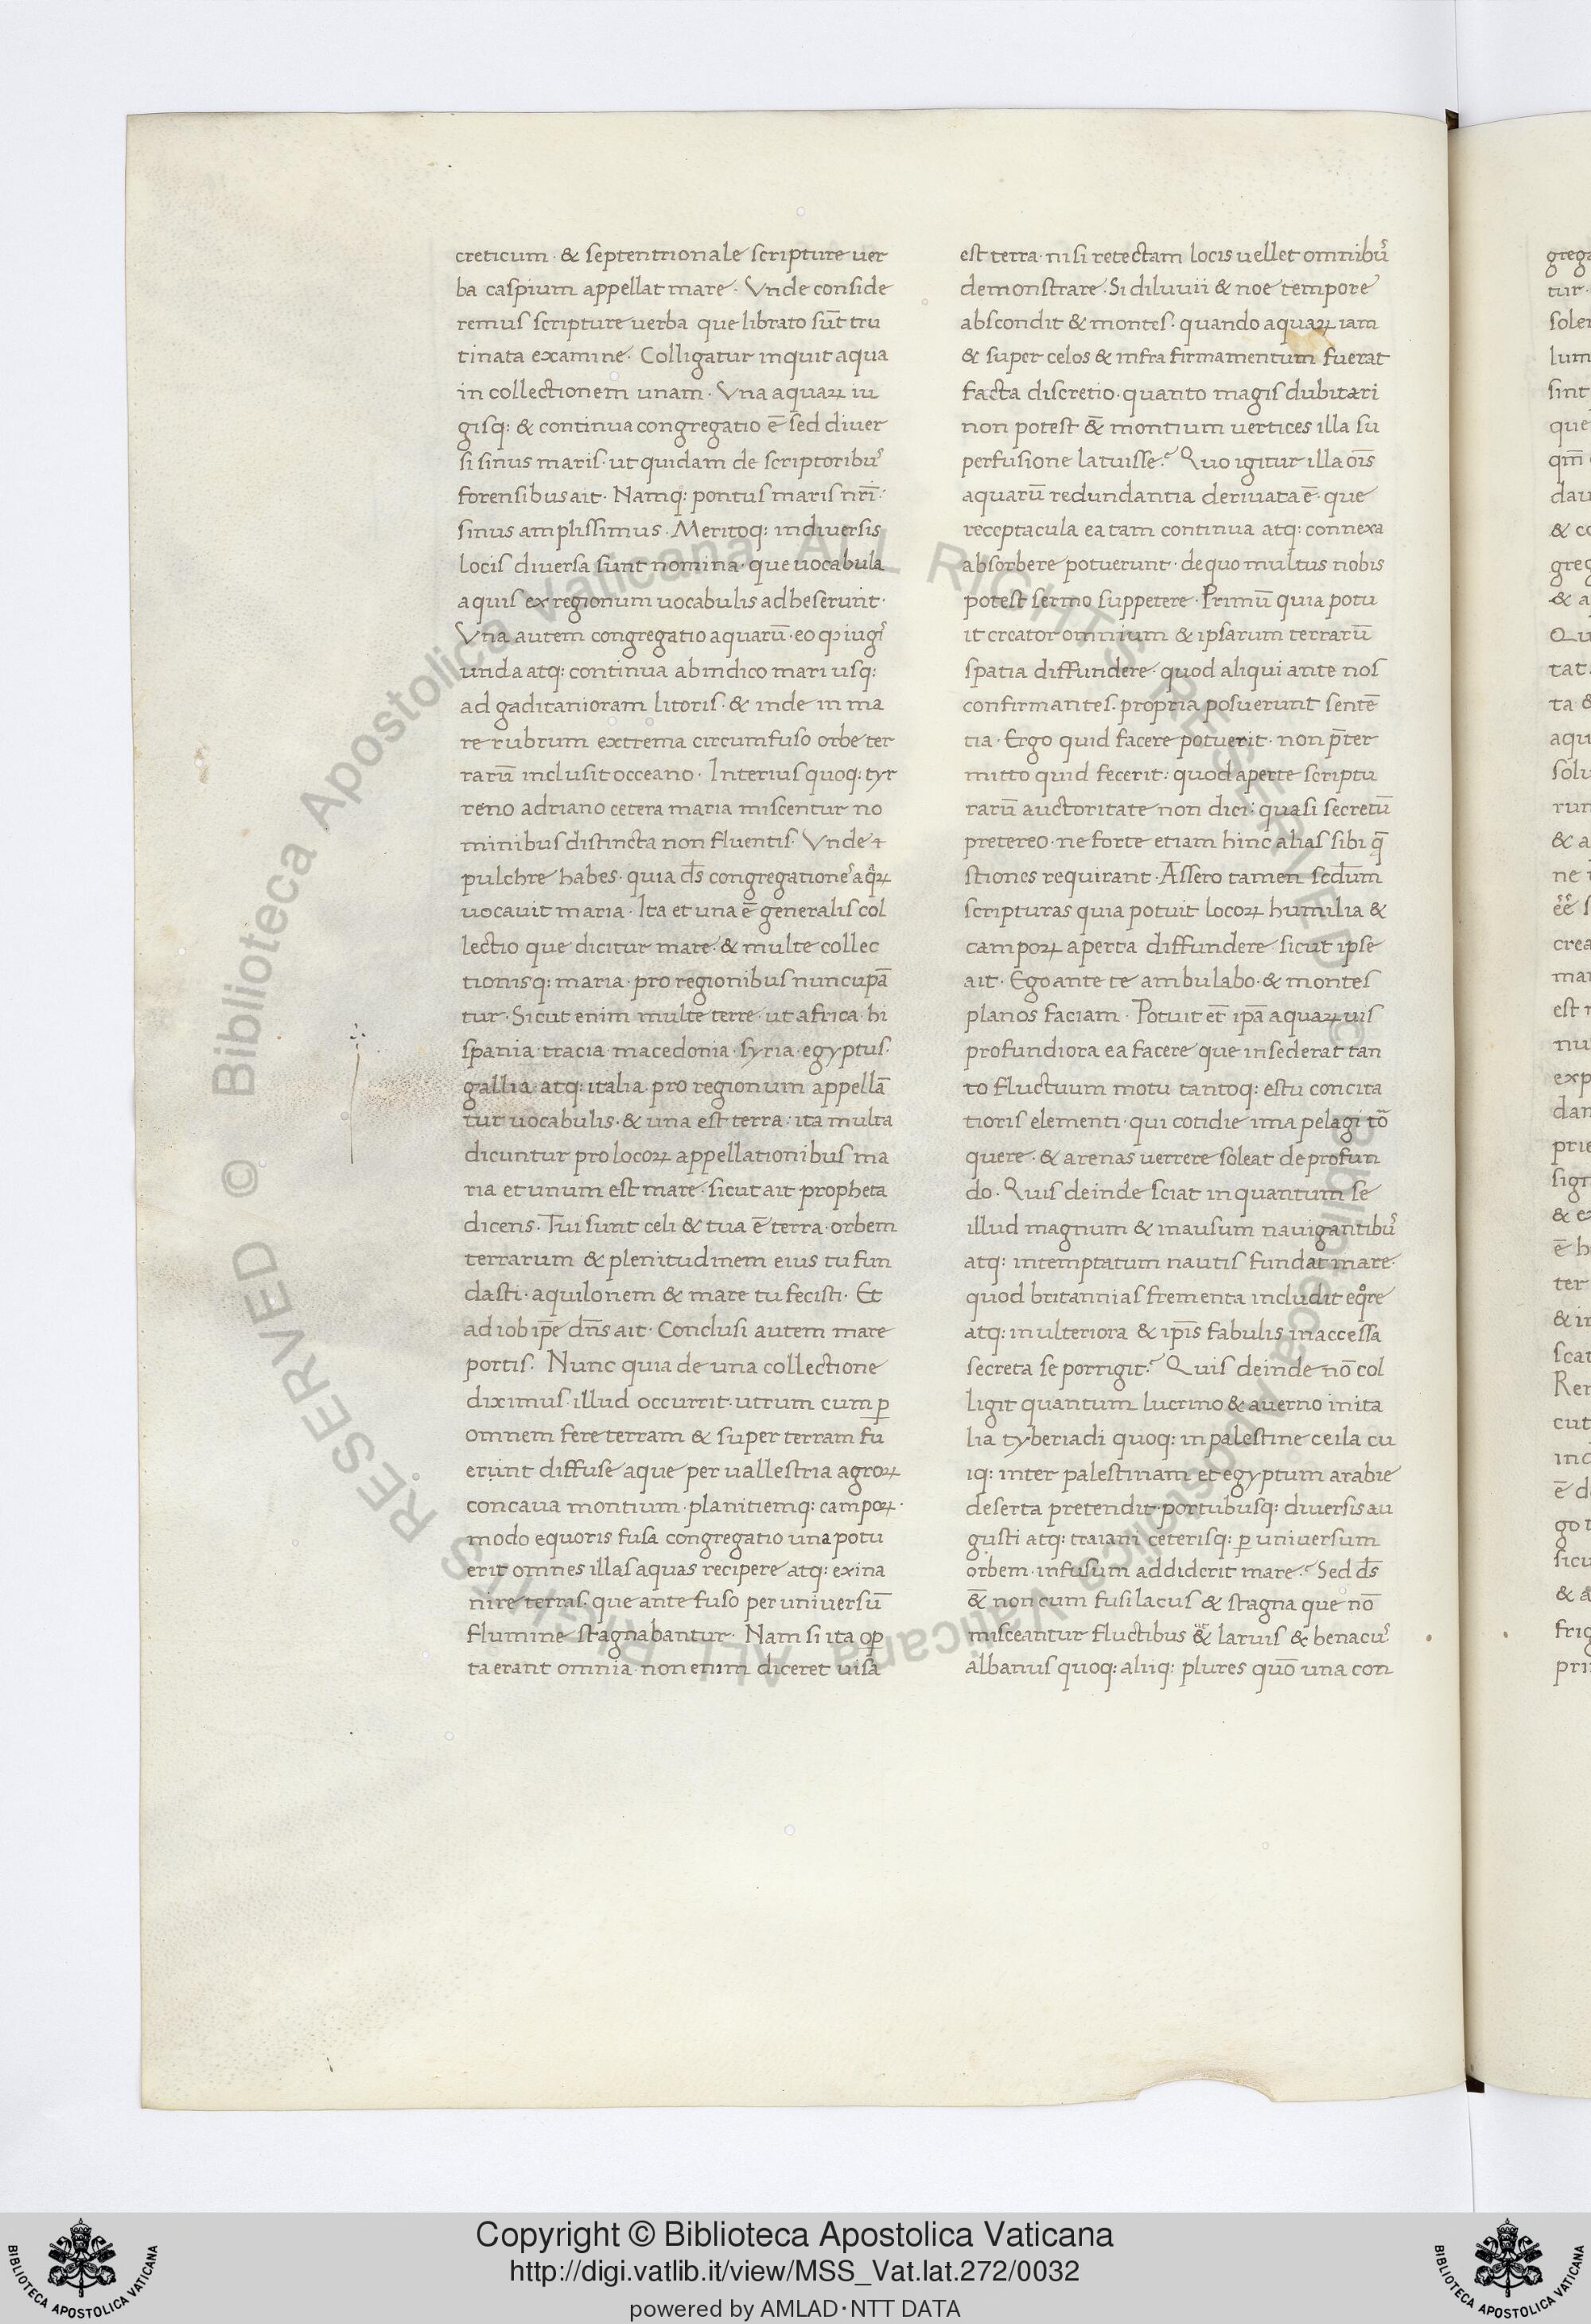 creticum · & septentrionale scripture uer
ba caspium appellat mare · Vnde conside
remus scripture uerba que librato sūt tru
tinata examine · Colligatur inquit aqua
in collectionem unam · Vna aquaꝝ iu
gisq: & continua congregatio ē sed diuer
si sinus maris · ut quidam de scriptoribuꝰ
forensibus ait · Namq: pontus maris nr̄i ·
sinus amplissimus · Meritoq: in diuersis
locis diuersa sunt nomina · que uocabula
aquis ex regionum uocabulis adheserunt ·
Vna autem congregatio aquarū · eo ꝙ iugiꝰ
unda atq: continua ab indico mari usq:
ad gaditanioram litoris · & inde in ma
re rubrum extrema circumfuso orbe ter
rarū inclusit occeano · Interius quoq: tyr
reno adriano cetera maria miscentur no
minibus distincta non fluentis · Vnde ⁊
pulchre habes · quia ds̄ congregationeꝰ aqꝝ
uocauit maria · Ita et una ē generalis col
lectio que dicitur mare · & multe collec
tionisq: maria · pro regionibus nuncupā
tur · Sicut enim multe terre · ut africa · hi
spania · tracia · macedonia · syria · egyptus ·
gallia atq: italia · pro regionum appellā
tur uocabulis · & una est terra : ita multa
dicuntur pro locoꝝ appellationibus ma
ria et unum est mare · sicut ait propheta
dicens · Tui sunt celi & tua ē terra · orbem
terrarum & plenitudinem eius tu fun
dasti · aquilonem & mare tu fecisti · Et
ad iob ip̄e dn̄s ait · Conclusi autem mare
portis · Nunc quia de una collectione
diximus · illud occurrit · utrum cum ꝑ
omnem fere terram & super terram fū
erunt diffuse aque per uallestria agroꝝ
concaua montium · planitiemq: campoꝝ ·
modo equoris fusa congregatio una potu
erit omnes illas aquas recipere atq: exina
nire terras · que ante fuso per uniuersū
flumine stagnabantur · Nam si ita oꝑ
ta erant omnia · non enim diceret uisa
est terra · nisi retectam locis uellet omnibuꝰ
demonstrare · Si diluuii & noe tempore
abscondit & montes · quando aquaꝝ iam
& super celos & infra firmamentum fuerat
facta discretio · quanto magis dubitari
non potest &̄ montium uertices illa su
perfusione latuisse · Quo igitur illa oīs
aquarū redundantia deriuata ē · que
receptacula ea tam continua atq: connexa
absorbere potuerunt · de quo multus nobis
potest sermo suppetere · Primū quia potu
it creator omnium & ipsarum terrarū
spatia diffundere · quod aliqui ante nos
confirmantes · propria posuerunt sentē
tia · Ergo quid facere potuerit · non p̄ter
mitto quid fecerit : quod aperte scriptu
rarū auctoritate non dici : quasi secretū
pretereo · ne forte etiam hinc alias sibi q̄
stiones requirant · Assero tamen scd̄um
scripturas quia potuit locoꝝ humilia &
campoꝝ aperta diffundere · sicut ipse
ait · Ego ante te ambulabo · & montes
planos faciam · Potuit et̄ ip̄a aquaꝝ uis
profundiora ea facere que insederat tan
to fluctuum motu tantoq: estu concita
tioris elementi · qui cotidie ima pelagi to
quere · & arenas uerrere soleat de profun
do · Quis deinde sciat in quantum se
illud magnum & inausum nauigantibuꝰ
atq: intemptatum nautis fundat mare ·
quod britannias frementa includit eqͦre
atq: in ulteriora & ip̄is fabulis inaccessa
secreta se porrigit · Quis deinde nō col
ligit quantum lucrino & auerno in ita
lia tyberiadi quoq: in palestine ceila cu
iq: inter palestinam et egyptum arabie
deserta pretendit · portubusq: diuersis au
gusti atq: traiani ceterisq: ꝑ uniuersum
orbem · infusum addiderit mare · Sed ds̄
&̄ non cum fusi lacus & stagna que nō
misceantur fluctibus & laruis & benacuꝰ
albanus quoq: aliiq: plures quō una con